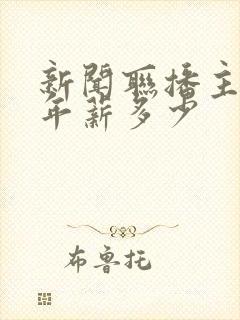 新聞聯播主
年薪多少
布鲁托